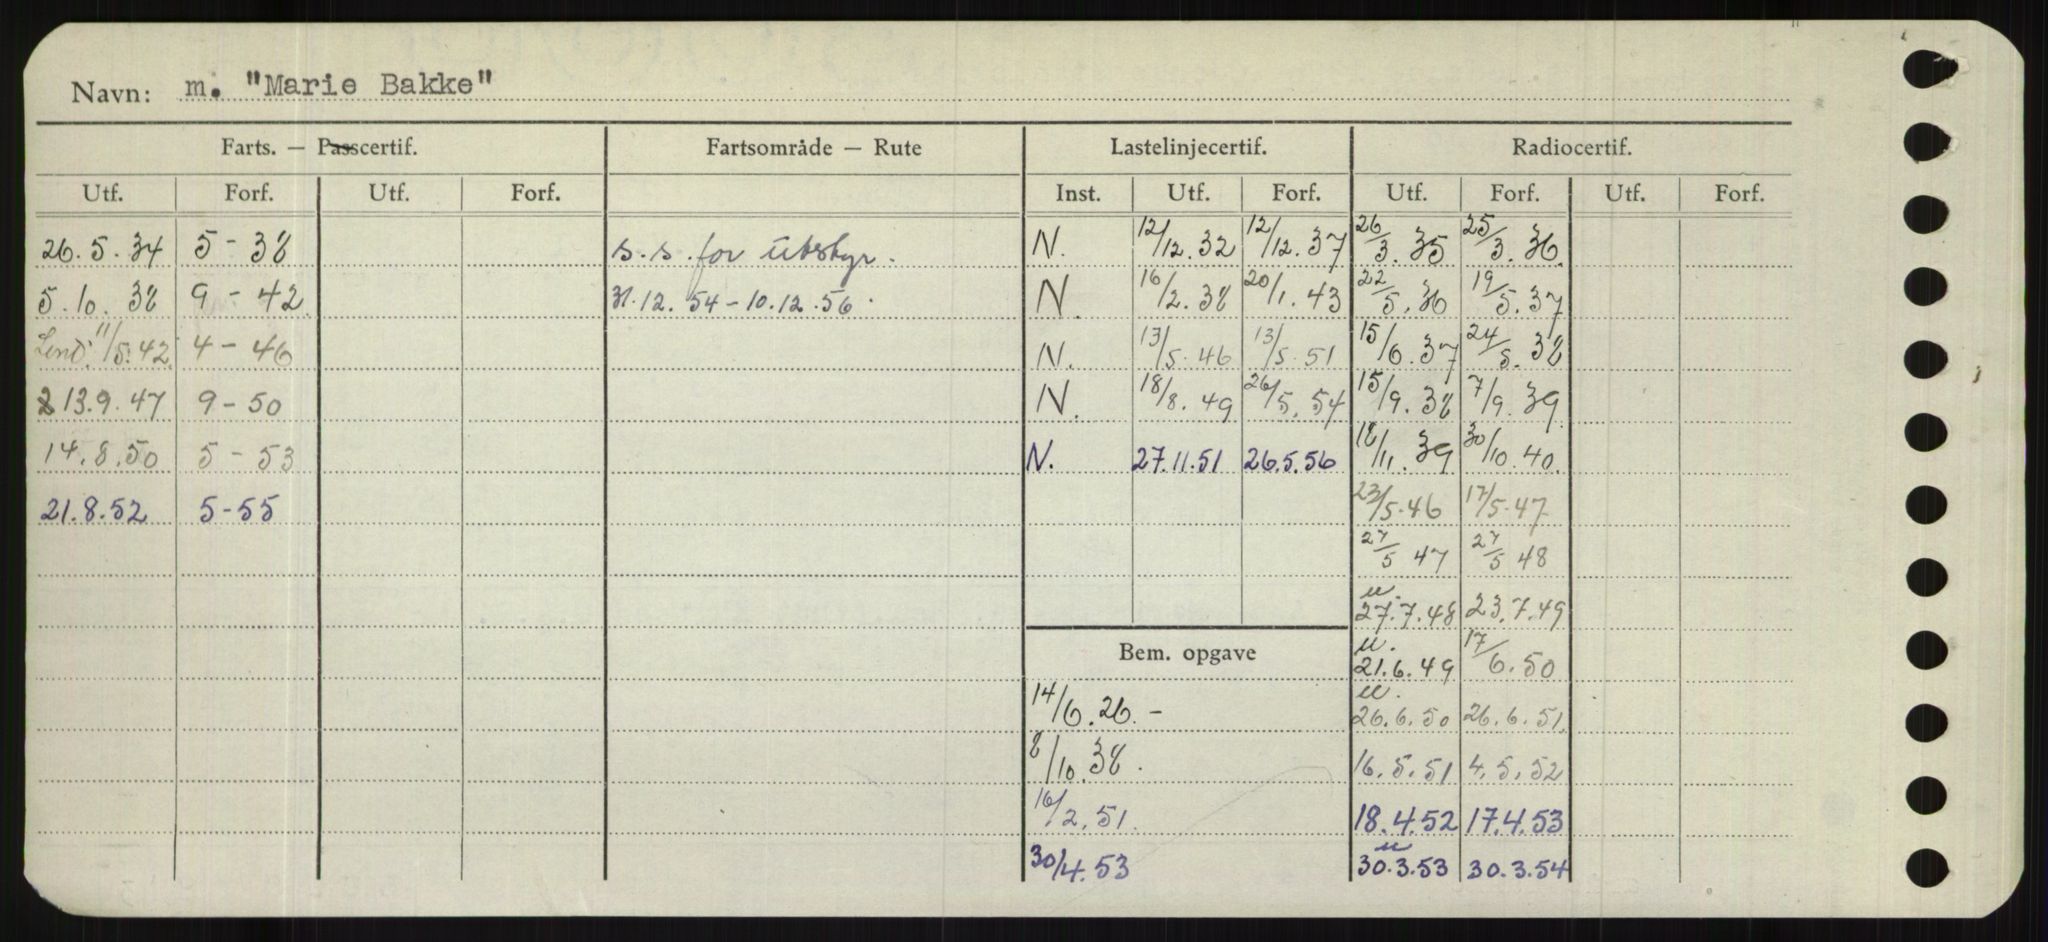 Navn: m. "Marie Bakke"
Farts. — Passcertif. Fartsområde — Rute Lastelinjecertif. Radiocertif.
Utf. Forf. Utf. Forf. Inst. Utf. Forf. Utf. Forf. Utf. Forf.
26.5.34 5-38 s.s. for Utstyr. N. 12/12.32 12/12.37 26/3.35 25/3.36.
5.10.38 9-42. 31.12.54-10.12.56. N. 16/2.38 20/1.43 22/5.36 19/5.37
11/5.42. 4-46 N. 13/5.46 13/5.51 15/6.37 24/5.38
13.9.47 9-50 N. 18/8.49 26/5.54 15/9.38 7/9.39
14.8.50 5-53 N. 27.11.51 26.5.56 18/11.39 30/10.40.
21.8.52 5-55 23/5.46 17/5.47
27/5 47 27/5 48
u.
27.7.48 23.7.49
u.
Bem. opgave 21.6.49 17/6.50
u.
14/6.26.- 26.6.50 26.6.51.
8/10.38. 16.5.51 4.5.52
16/2.51. 18.4.52 17.4.53
u
30/4.53 30.3.53 30.3.54